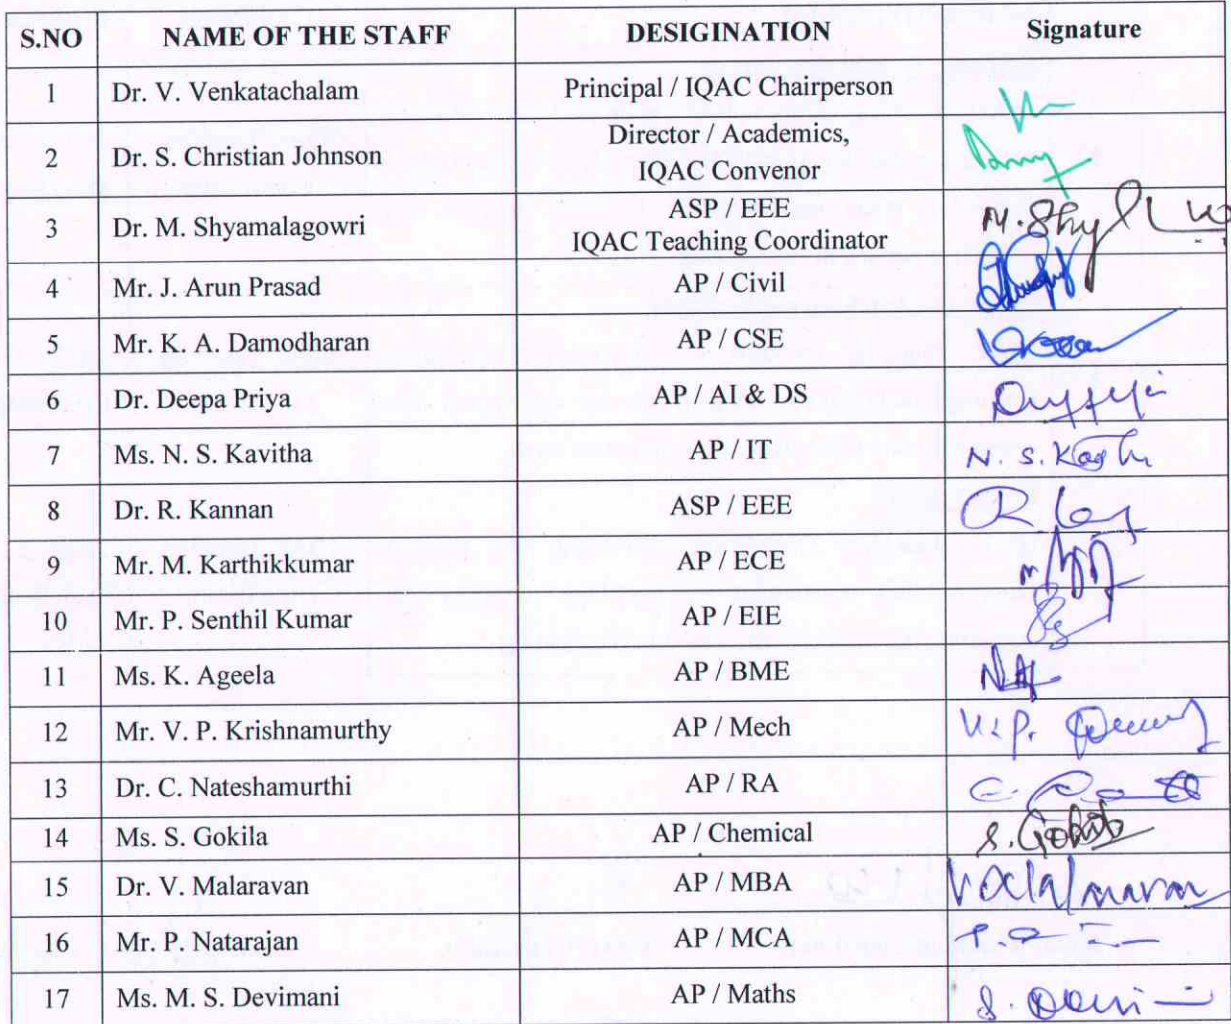 S.NO NAME OF THE STAFF DESIGINATION Signature
1 Dr. V. Venkatachalam Principal / IQAC Chairperson
2 Dr. S. Christian Johnson Director / Academics,
IQAC Convenor
3 Dr. M. Shyamalagowri ASP / EEE
IQAC Teaching Coordinator
4 Mr. J. Arun Prasad AP / Civil
5 Mr. K. A. Damodharan AP / CSE
6 Dr. Deepa Priya AP / AI & DS
7 Ms. N. S. Kavitha AP / IT N. S.
8 Dr. R. Kannan ASP / EEE
9 Mr. M. Karthikkumar AP / ECE
10 Mr. P. Senthil Kumar AP / EIE
11 Ms. K. Ageela AP / BME
12 Mr. V. P. Krishnamurthy AP / Mech V. P.
13 Dr. C. Nateshamurthi AP / RA
14 Ms. S. Gokila AP / Chemical S. Gokila
15 Dr. V. Malaravan AP / MBA
16 Mr. P. Natarajan AP / MCA
17 Ms. M. S. Devimani AP / Maths